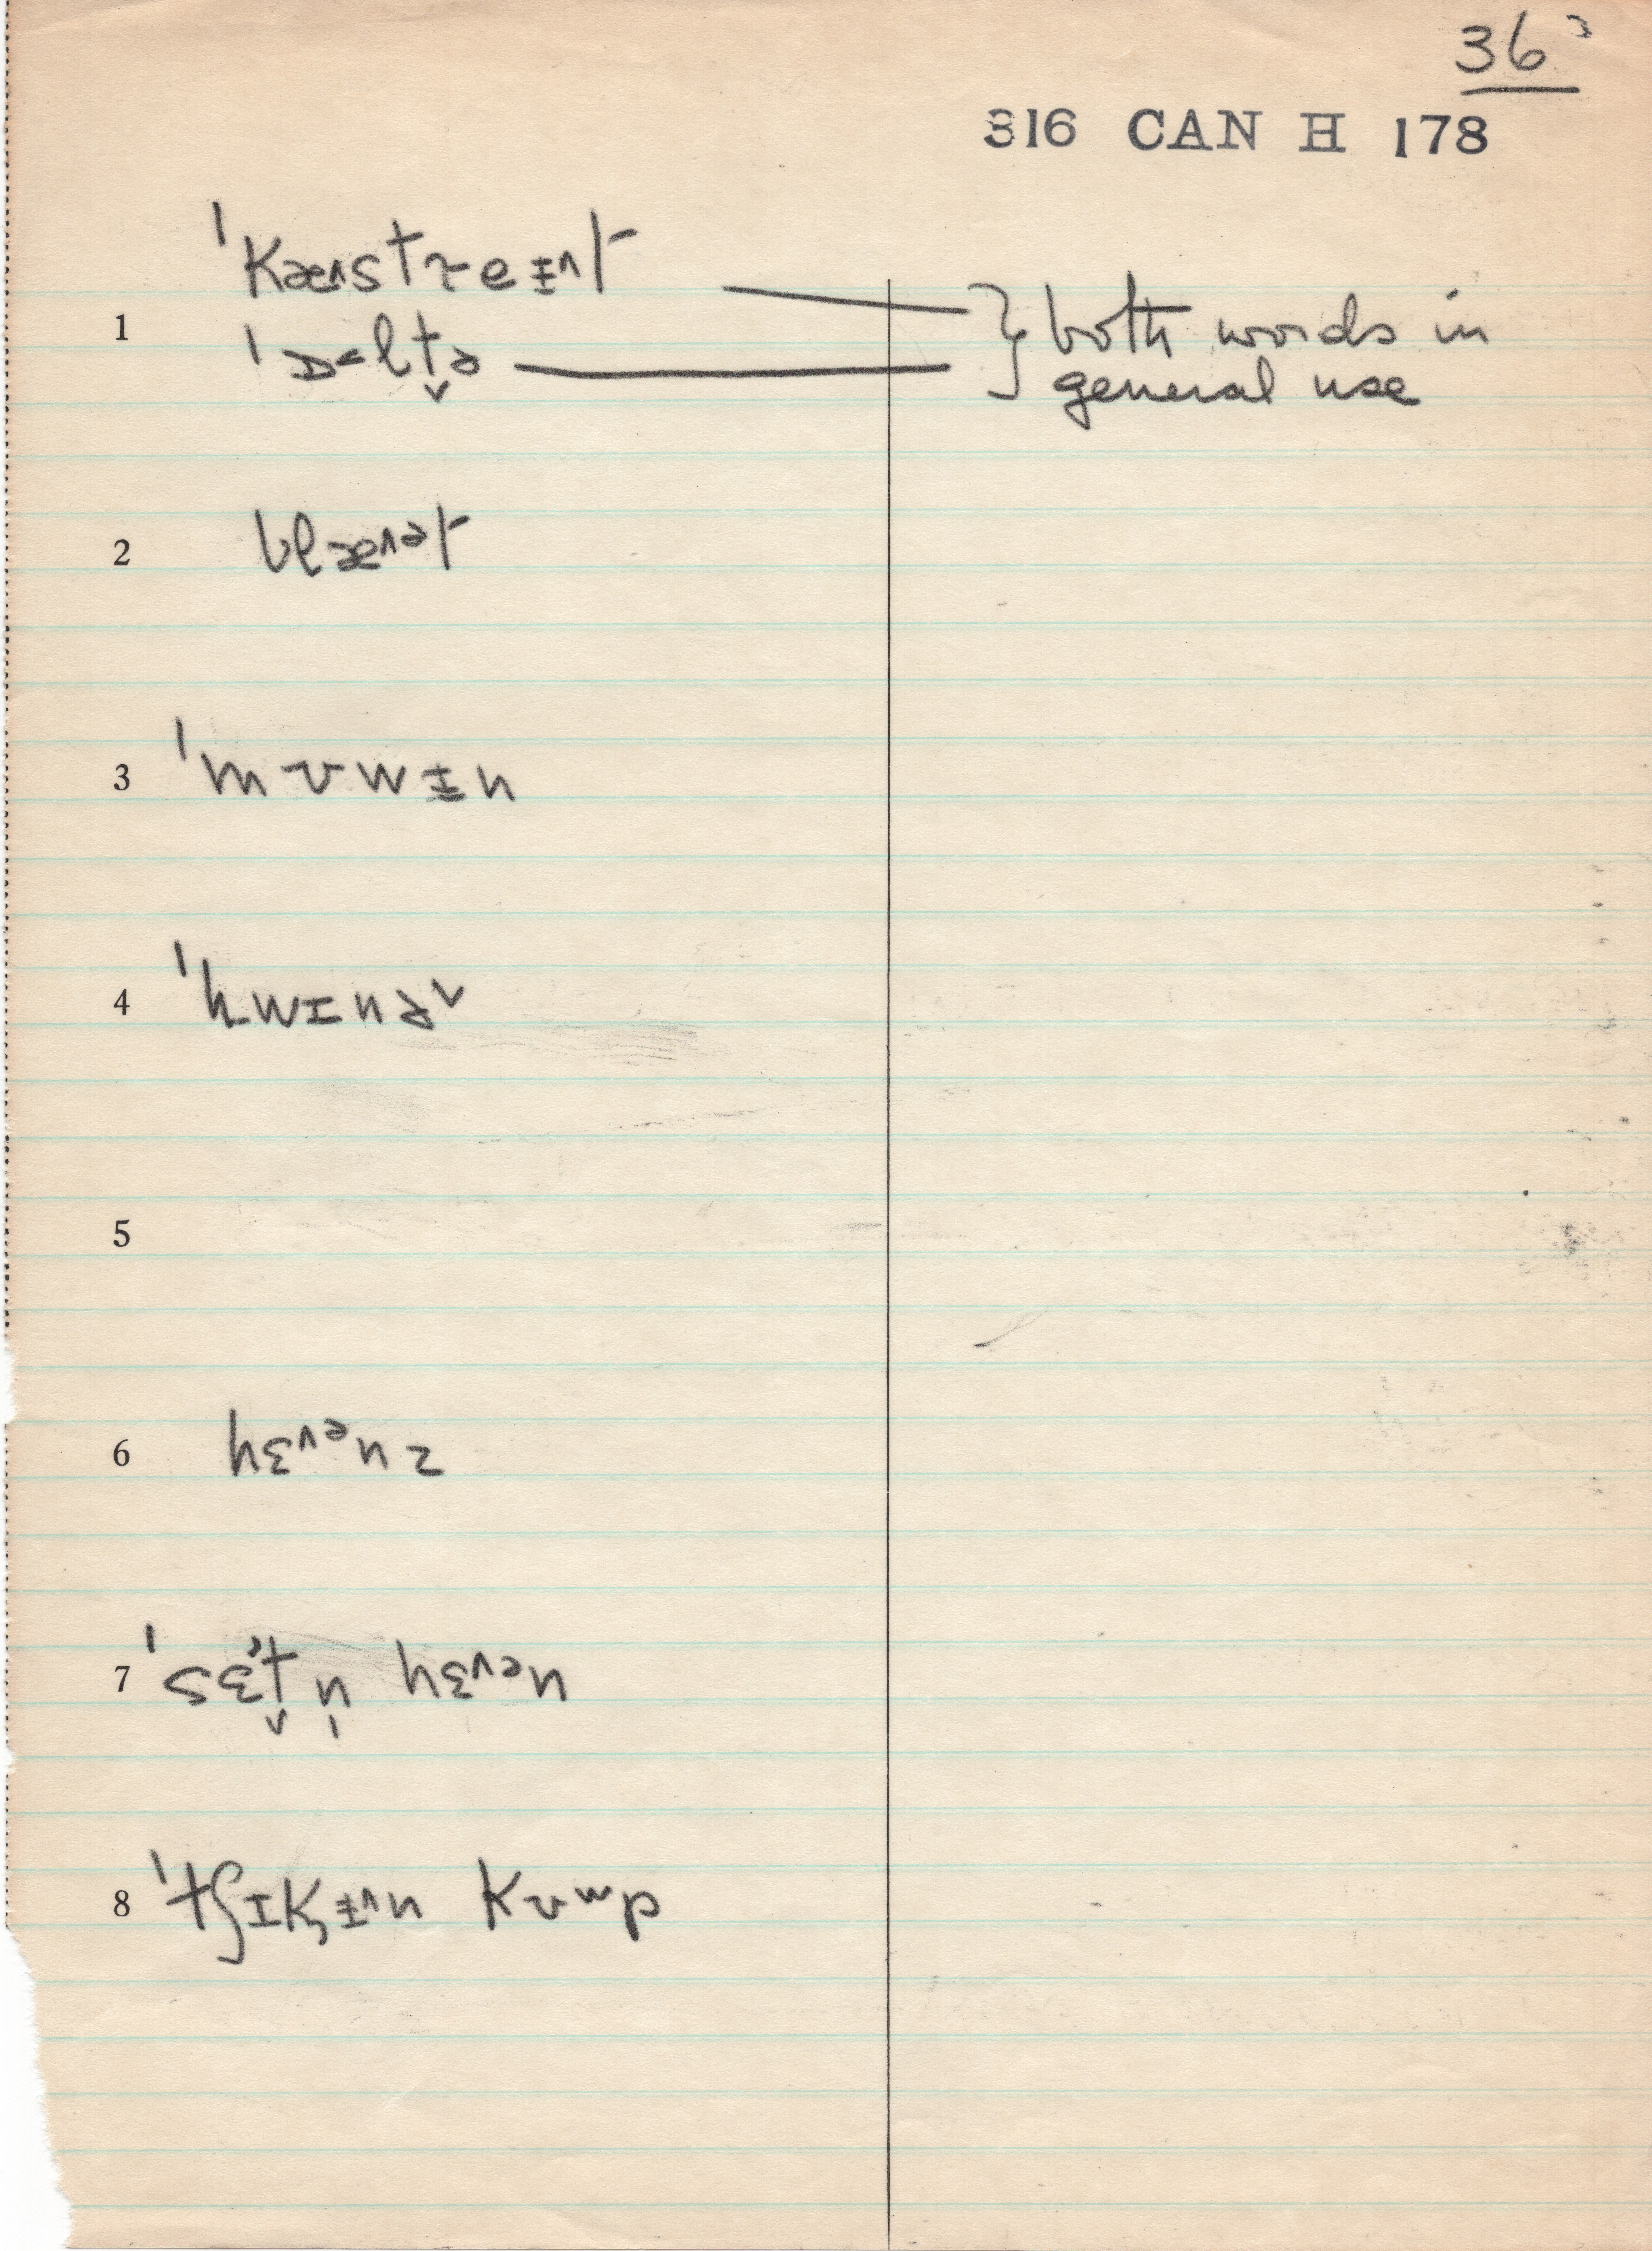 36
316 CAN H 178
ˈkæ^stɹeɨ^t
1
ˈɒ<lt̬ə } both words in
general use
2 blæ^ət
3 ˈmʊwɨn
4 ˈhwɪnɚ
5
6 hɛ^ənz
7 ˈsɛt̬n̩ hɛ^ən
8 ˈtʃɪkɨ^n kʊʷp